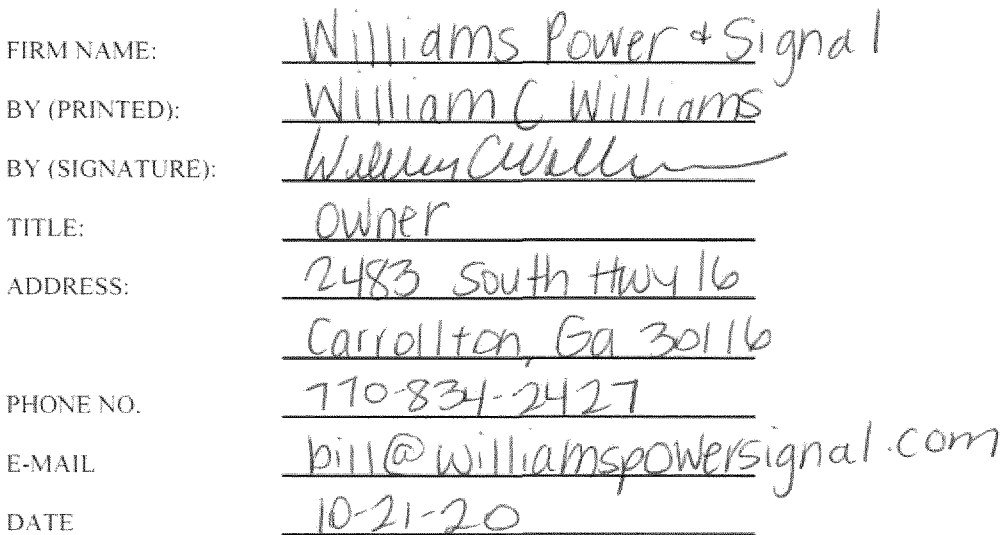 FIRM NAME: Williams Power & Signal
BY (PRINTED): William C Williams
BY (SIGNATURE): William C Williams
TITLE: owner
ADDRESS: 2483 South Hwy 16
Carrollton, Ga 30116
PHONE NO. 770-834-2427
E-MAIL bill@williamspowersignal.com
DATE 10-21-20